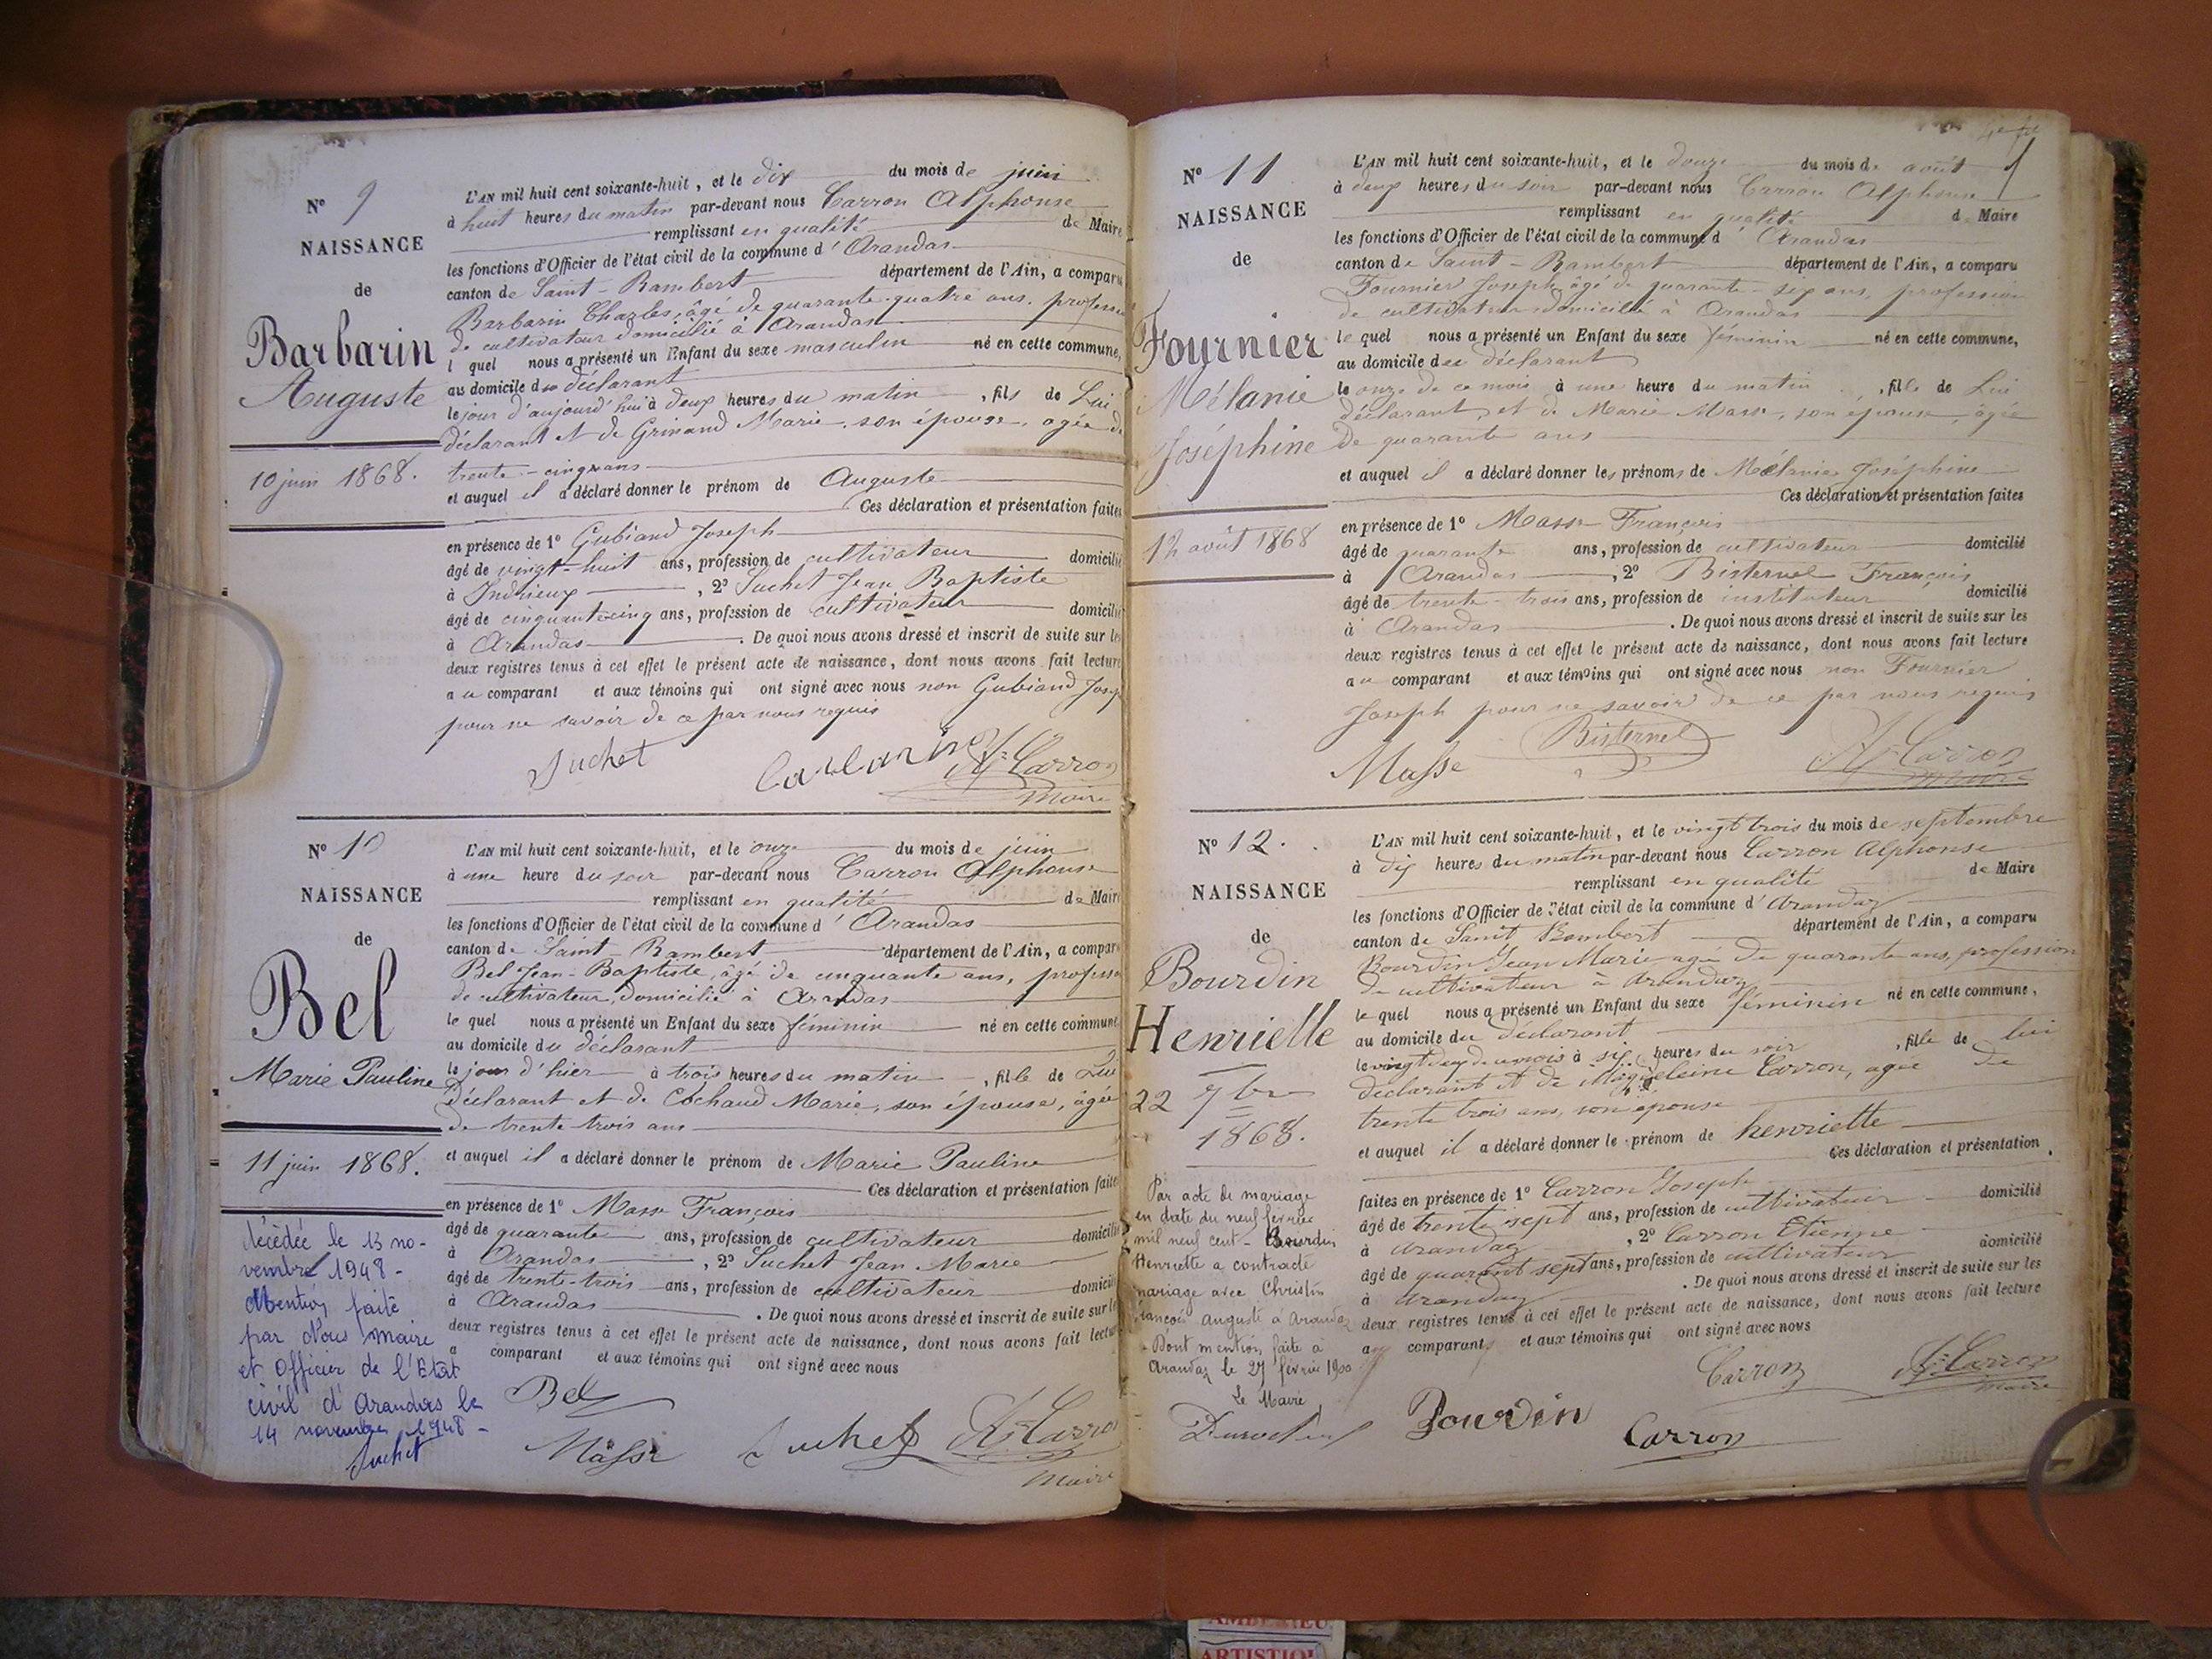 N° 9
NAISSANCE
de
Barbarin
Auguste
10 juin 1868.
L'AN mil huit cent soixante-huit, et le dix du mois de juin
à huit heures du matin par-devant nous Carron Alphonse
remplissant en qualité de Maire
les fonctions d'Officier de l'état civil de la commune d'Arandas
canton de Saint-Rambert département de l'Ain, a comparu
Barbarin Charles, âgé de quarante-quatre ans, profession
de cultivateur domicilié à Arandas
l quel nous a présenté un Enfant du sexe masculin né en cette commune,
au domicile du déclarant
le jour d'aujourd'hui à deux heures du matin, fils de Lui
déclarant et de Grinand Marie, son épouse, agée de
trente-cinq ans
et auquel il a déclaré donner le prénom de Auguste
Ces déclaration et présentation faites
en présence de 1° Gubiand Joseph
âgé de vingt-huit ans, profession de cultivateur domicilié
à Indrieux, 2° Suchet Jean Baptiste
âgé de cinquante-cinq ans, profession de cultivateur domicilié
à Arandas. De quoi nous avons dressé et inscrit de suite sur les
deux registres tenus à cet effet le présent acte de naissance, dont nous avons fait lecture
au comparant et aux témoins qui ont signé avec nous non Gubiand Josep
pour ne savoir de ce par nous requis
Suchet Barbarin A. Carron
Maire
N° 10
NAISSANCE
de
Bel
Marie Pauline
11 juin 1868.
Décédée le 13 no-
vembre 1948 -
Mention faite
par Nous Maire
et Officier de l'Etat
civil d'Arandas le
14 novembre 1948 -
Suchet
L'AN mil huit cent soixante-huit, et le onze du mois de juin
à une heure du soir par-devant nous Carron Alphonse
remplissant en qualité de Maire
les fonctions d'Officier de l'état civil de la commune d'Arandas
canton de Saint-Rambert département de l'Ain, a comparu
Bel Jean-Baptiste, âgé de cinquante ans, profession
de cultivateur, domicilié à Arandas
le quel nous a présenté un Enfant du sexe féminin né en cette commune
au domicile du déclarant
le jour d'hier à trois heures du matin, fille de Lui
Déclarant et de Cochaud Marie, son épouse, âgée
de trente trois ans
et auquel il a déclaré donner le prénom de Marie Pauline
Ces déclaration et présentation faites
en présence de 1° Masse François
âgé de quarante ans, profession de cultivateur domicilié
à Arandas, 2° Suchet Jean Marie
âgé de trente-trois ans, profession de cultivateur domicilié
à Arandas. De quoi nous avons dressé et inscrit de suite sur les
deux registres tenus à cet effet le présent acte de naissance, dont nous avons fait lecture
a comparant et aux témoins qui ont signé avec nous
Bel
Masse Suchet A. Carron
Maire
N° 11
NAISSANCE
de
Fournier
Mélanie
Joséphine
12 août 1868
L'AN mil huit cent soixante-huit, et le douze du mois de août
à deux heures du soir par-devant nous Carron Alphonse
remplissant en qualité de Maire
les fonctions d'Officier de l'état civil de la commune d'Arandas
canton de Saint-Rambert département de l'Ain, a comparu
Fournier Joseph âgé de quarante-six ans, profession
de cultivateur domicilié à Arandas
le quel nous a présenté un Enfant du sexe féminin né en cette commune,
au domicile du déclarant
le onze de ce mois à une heure du matin, fille de Lui
déclarant et de Marie Masse, son épouse, âgée
de quarante ans
et auquel il a déclaré donner les prénoms de Mélanie Joséphine
Ces déclaration et présentation faites
en présence de 1° Masse François
âgé de quarante ans, profession de cultivateur domicilié
à Arandas, 2° Bisternel François
âgé de trente-trois ans, profession de instituteur domicilié
à Arandas. De quoi nous avons dressé et inscrit de suite sur les
deux registres tenus à cet effet le présent acte de naissance, dont nous avons fait lecture
au comparant et aux témoins qui ont signé avec nous non Fournier
Joseph pour ne savoir de ce par nous requis
Masse Bisternel A. Carron
Maire
N° 12.
NAISSANCE
de
Bourdin
Henriette
22 7bre
1868.
Par acte de mariage
en date du neuf février
mil neuf cent - Bourdin
Henriette a contracté
mariage avec Christin
François Auguste à Arandas
- Dont mention faite à
Arandaz le 27 février 1900
Le Maire
L'AN mil huit cent soixante-huit, et le vingt trois du mois de septembre
à dix heures du matin par-devant nous Carron Alphonse
remplissant en qualité de Maire
les fonctions d'Officier de l'état civil de la commune d'Arandaz
canton de Saint Rambert département de l'Ain, a comparu
Bourdin Jean Marie agé de quarante ans, profession
de cultivateur à Arandaz
le quel nous a présenté un Enfant du sexe féminin né en cette commune,
au domicile du déclarant
le vingt deux du mois à six heures du soir, fille de lui
déclarant et de Magdeleine Carron, agée de
trente trois ans, son épouse
et auquel il a déclaré donner le prénom de henriette
Ces déclaration et présentation
faites en présence de 1° Carron Joseph
âgé de trente sept ans, profession de cultivateur domicilié
à Arandaz, 2° Carron Etienne
âgé de quarant sept ans, profession de cultivateur domicilié
à Arandaz. De quoi nous avons dressé et inscrit de suite sur les
deux registres tenus à cet effet le présent acte de naissance, dont nous avons fait lecture
aux comparants et aux témoins qui ont signé avec nous
Carron A. Carron
Maire
Bourdin Carron
AMBERIEU
ARTISTIQU